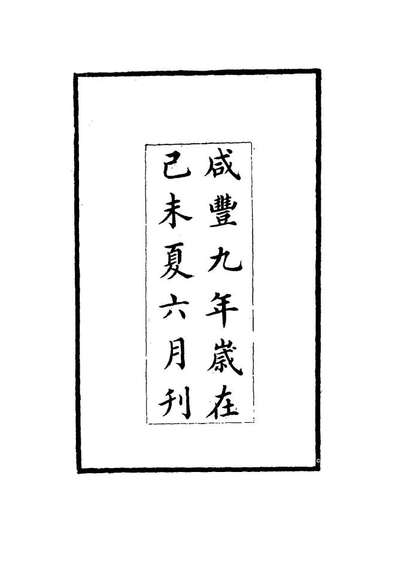 咸豐九年歲在
己未夏六月刊